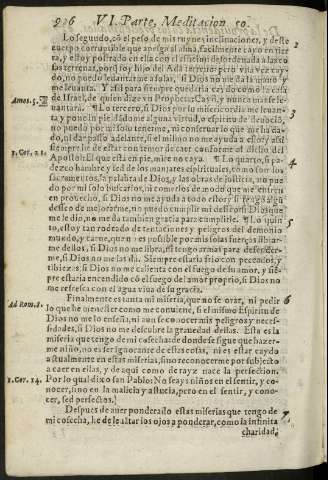 926 VI. Parte, Meditacion 50.
Lo segundo, cõ el peso de mis ruynes inclinaciones, y deste
cuerpo corruptible que apesga al alma, facilmente cayo en tier
ra, y estoy postrado en ella con el aficion desordenada a las co
sas terrenas, porq̃ soy hijo del Adã terreno: pero vna vez cay-
do, no puedo leuantarme a solas, si Dios no me da la mano y
me leuanta. Y assi para siempre quedaria caydo como la casa
Amos. 5. de Israel, de quien dize vn Propheta: Cayò, y nunca mas se le-
uantarà. ¶ Lo tercero, si Dios por su misericordia me leuan-
ta, y pone en pie dãdome alguna virtud, o espiritu de deuociõ,
no puedo por mi solo tenerme, ni conseruar lo que me ha da-
do, ni dar passo adelante, si el mismo no me ayuda a ello: y assi
siempre he de estar con temor de caer conforme al dicho del
1. Cor. 21. Apostol: El que està en pie, mire no caya. ¶ Lo quarto, si pa-
dezco hambre y sed de los manjares espirituales, como son los
sacramentos, la palabra de Dios, y las obras de justicia, no pue
do por mi solo buscarlos, ni comerlos de modo que me entren
en prouecho, si Dios no me ayuda a todo esto: y si tengo algũ
desseo de mejorarme, no puedo cumplir mi desseo, si Dios que
me le dio, no me da tambien gracia para cumplirle. ¶ Lo quin
to, estoy tan rodeado de tentaciones y peligros del demonio
mundo, y carne, que no es possible por mis solas fuerças librar
me dellas, si Dios no me libra, ni tengo armas para defender-
me, si Dios no me las dà. Siempre estaria frio con pecados, y
tibiezas, si Dios no me calienta con el fuego de su amor, y siẽ-
pre estaria encendido cõ el fuego del amor proprio, si Dios no
me refresca con el agua viua de su gracia.
Finalmente es tanta mi miseria, que no se orar, ni pedir
Ad Rom. 8. lo que he menester como me conuiene, si el mismo Espiritu de
Dios no me lo enseña, ni aun se conocer mis peligros y neces-
sidades, si Dios no me descubre la grauedad dellas. Esta es la
miseria que tengo de mi cosecha de donde se sigue que hazer-
me niño, no es ser ignorante de estas cosas, ni es estar caydo
actualmente en estas miserias, sino reconocerme por subjecto
a caer en ellas, y de aqui como de rayz nace la perfeccion.
1. Cor. 14. Por lo qual dixo san Pablo: No seays niños en el sentir, y co-
nocer, sino en la malicia y astucia, pero en el sentir, y cono-
cer, sed perfectos.
Despues de auer ponderado estas miserias que tengo de
mi cosecha, he de leuantar los ojos a ponderar, como la infinita
charidad,
2
3
4
5
6
7